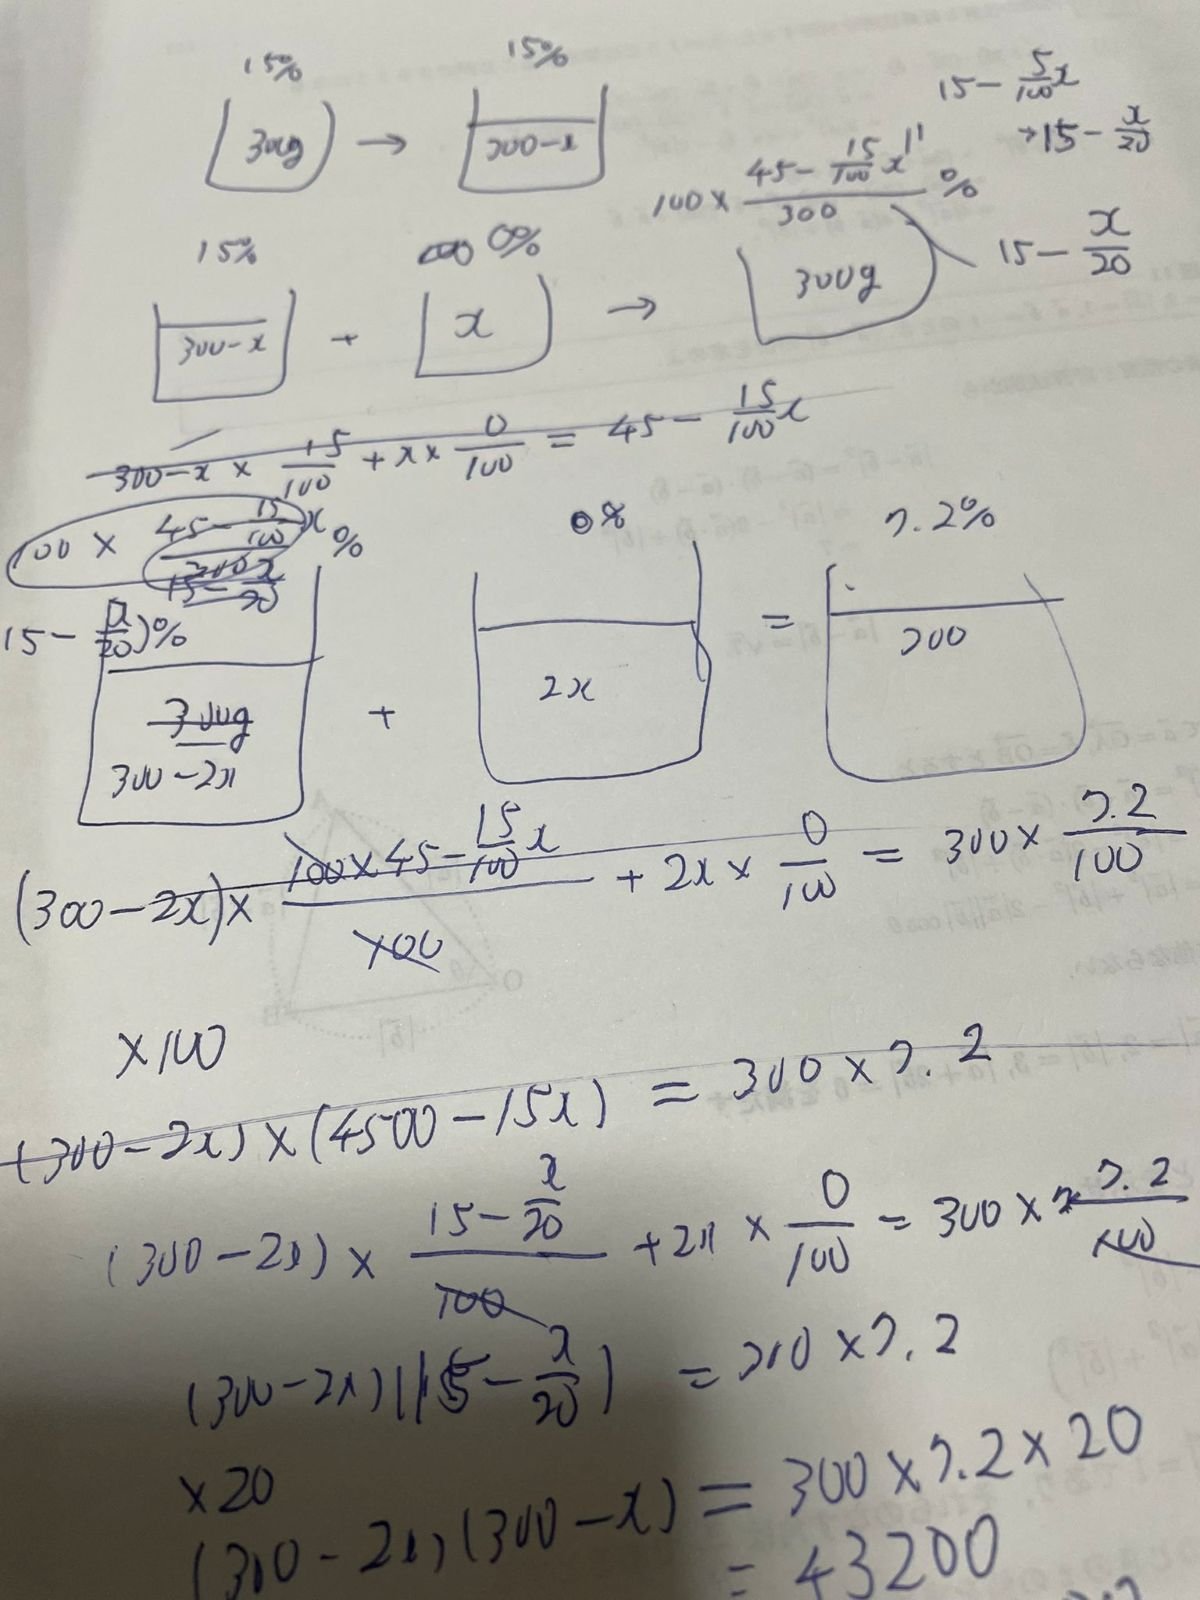 15% 15%
300g → 300-x
15-5/100x
→15-x/20
100× (45-15/100x)/300 %
15% 0%
300-x + x → 300g 15-x/20
300-x × 15/100 + x× 0/100 = 45-15/100x
100 × (45-15/100x)/300 %
15-x/20
15-x/20)% 0% 7.2%
300g
300-2x + 2x = 300
(300-2x)× (100×45-15/100x)/100 + 2x× 0/100 = 300× 7.2/100
×100
(300-2x)×(4500-15x) = 300×7.2
(300-2x)× (15-x/20)/100 +2x × 0/100 = 300× 7.2/100
(300-2x)(15-x/20) =300×7.2
×20
(300-2x)(300-x) = 300×7.2×20
= 43200